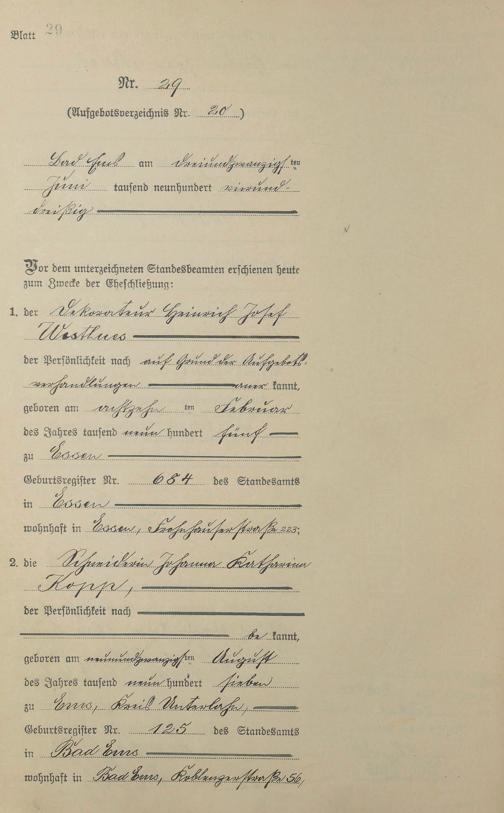 Blatt 29
Nr. 29
(Aufgebotsverzeichnis Nr. 20)
Bad Ems am dreiundzwanzigsten
Juni tausend neunhundert vierund-
dreißig
Vor dem unterzeichneten Standesbeamten erschienen heute
zum Zwecke der Eheschließung:
1. der Dekorateur Heinrich Josef
Westhues
der Persönlichkeit nach auf Grund der Aufgebots-
verhandlungen aner kannt,
geboren am achtzehn ten Februar
des Jahres tausend neun hundert fünf
zu Essen
Geburtsregister Nr. 684 des Standesamts
in Essen
wohnhaft in Essen, Frohnhauserstraße 223;
2. die Schneiderin Johanna Katharina
Kopp,
der Persönlichkeit nach
be kannt,
geboren am neunundzwanzigsten August
des Jahres tausend neun hundert sieben
zu Ems, Kreis Unterlahn,
Geburtsregister Nr. 125 des Standesamts
in Bad Ems
wohnhaft in Bad Ems, Koblenzerstraße 56,